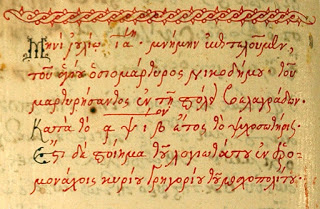 Μηνὶ ἰουλίῳ ια΄ · μνήμην ἐπιτελοῦμεν,
τοῦ ἁγίου ὁσιομάρτυρος Νικοδήμου τοῦ
μαρτυρήσαντος ἐν τῇ πόλει Βελαγράδων.
Κατὰ τὸ ἔτος τὸ
Ἔτι δὲ ποίημα τοῦ λογιωτάτου ἐν ἱερο-
μονάχοις κυρίου Γρηγορίου τοῦ